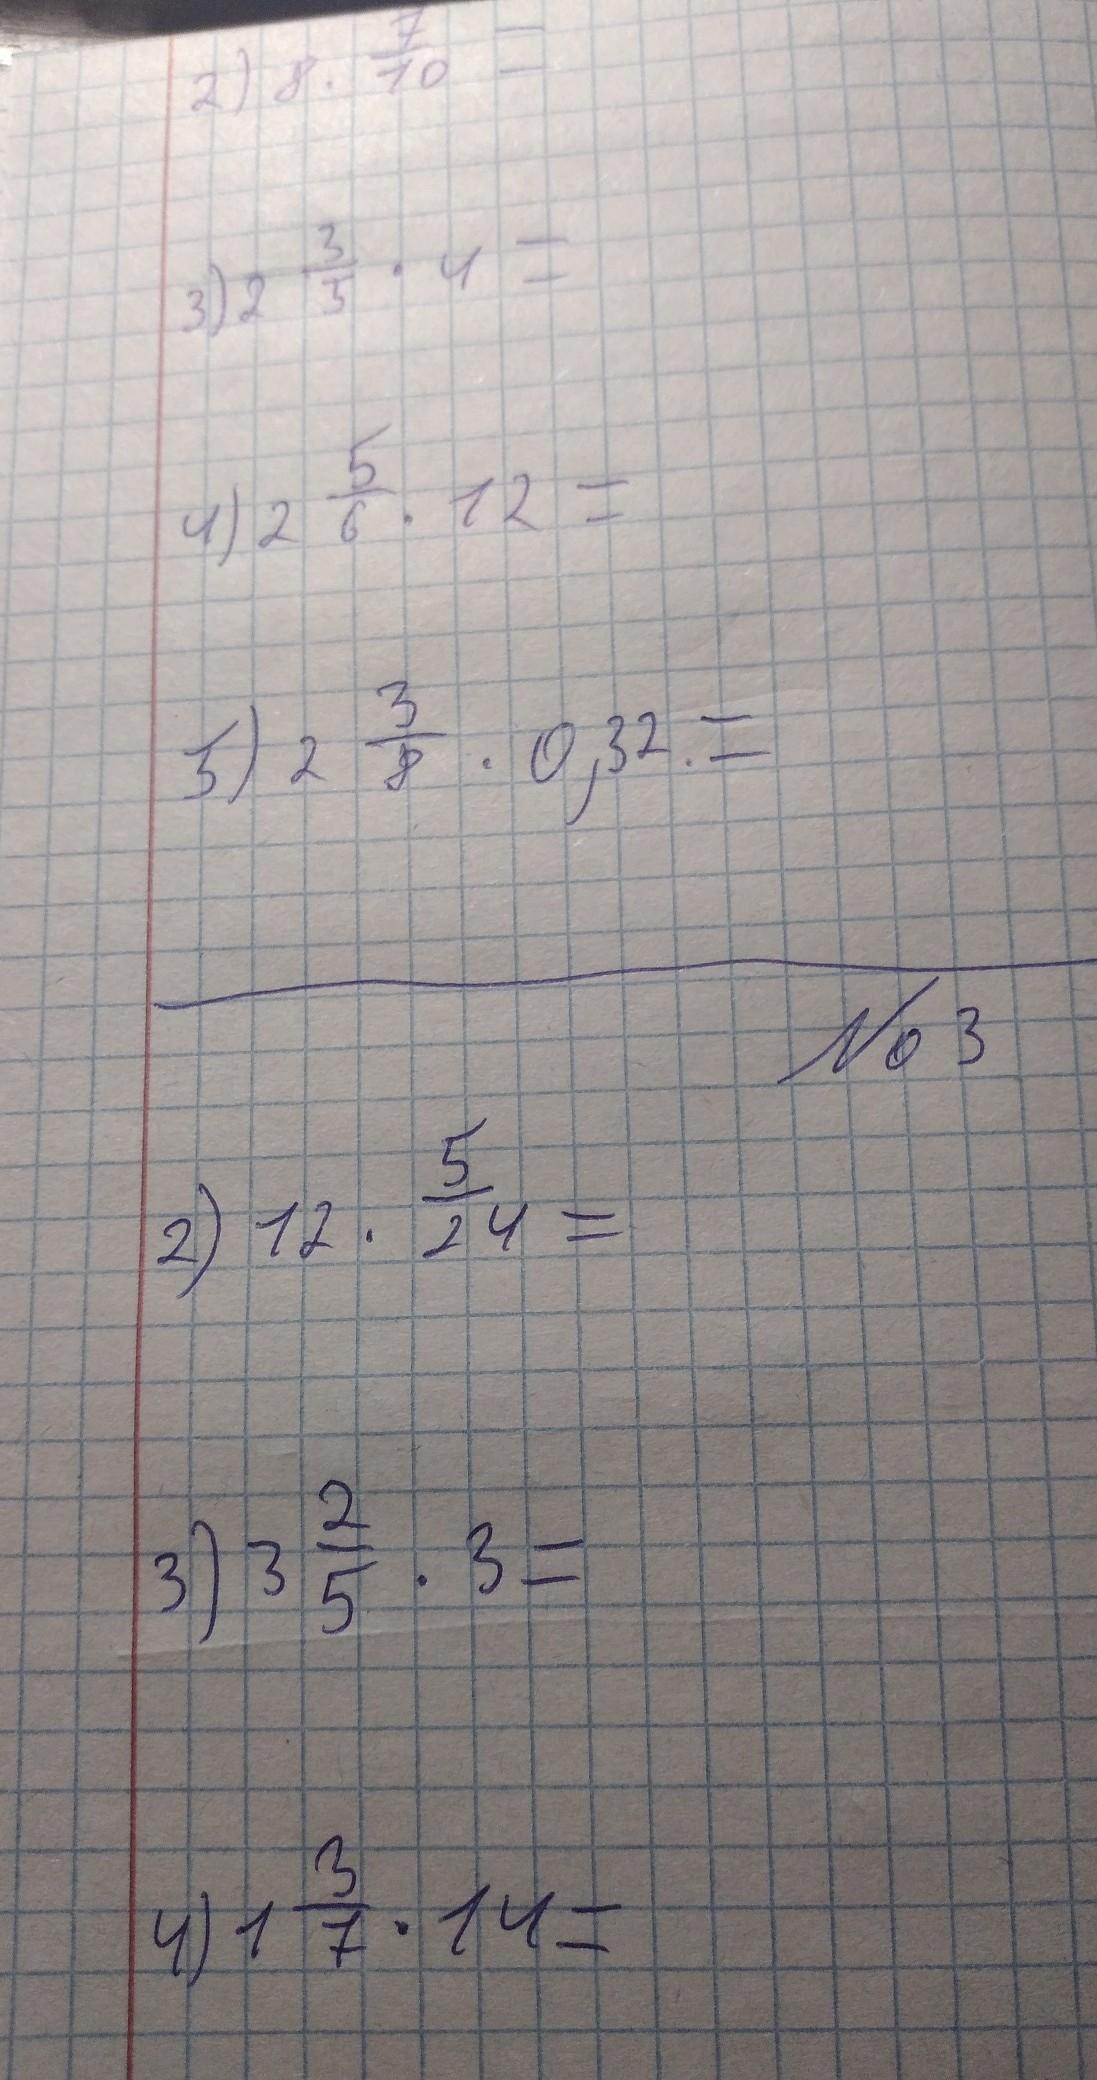 2) 8 · 7/10 =
3) 2 3/5 · 4 =
4) 2 5/6 · 12 =
5) 2 3/8 · 0,32. =
№ 3
2) 12 · 5/24 =
3) 3 2/5 · 3 =
4) 1 3/7 · 14 =